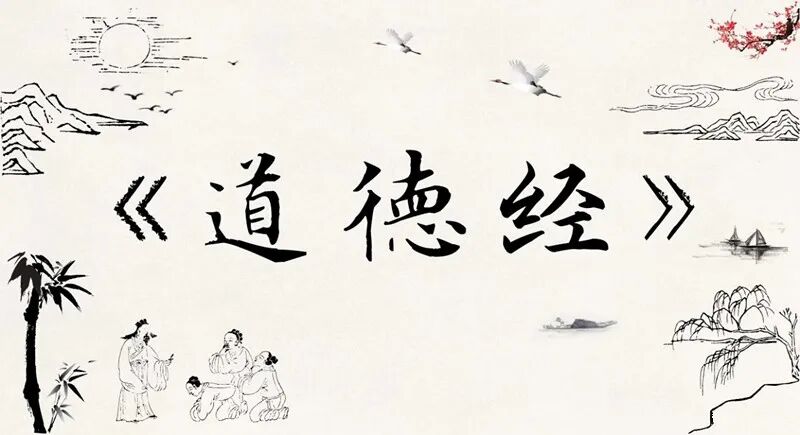 《道德经》